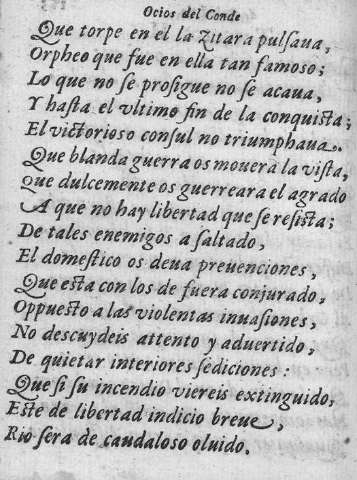 Ocios del Conde
Que torpe en el la zitara pulsaua,
Orpheo que fue en ella tan famoso;
Lo que no se prosigue no se acaua,
Y hasta el vltimo fin de la conquista;
El victorioso consul no triumphaua.
Que blanda guerra os mouera la vista,
Que dulcemente os guerreara el agrado
A que no hay libertad que se resista;
De tales enemigos asaltado,
El domestico os deua preuenciones,
Que esta con los de fuera conjurado,
Oppuesto a las violentas inuasiones,
No descuydeis attento y aduertido,
De quietar interiores sediciones:
Que si su incendio viereis extinguido,
Este de libertad indicio breue,
Rio sera de caudaloso oluido.